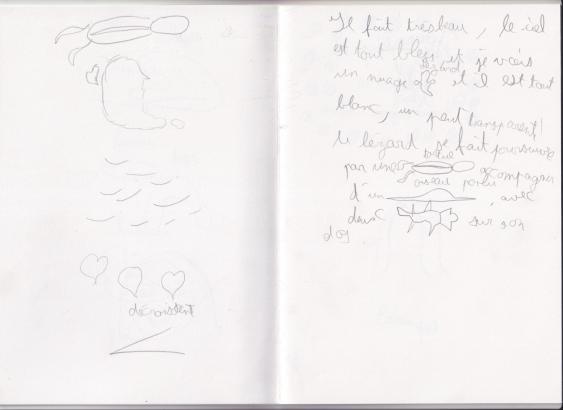 décroissent
Il fait très beau, le ciel
est tout bleu et je vois
lézard
un nuage et il est tout
blanc, un peut transparent!
le lézard se fait poursuivre
tortue
par une accompagner
oiseau
d'un , avec
deux sur son
dos